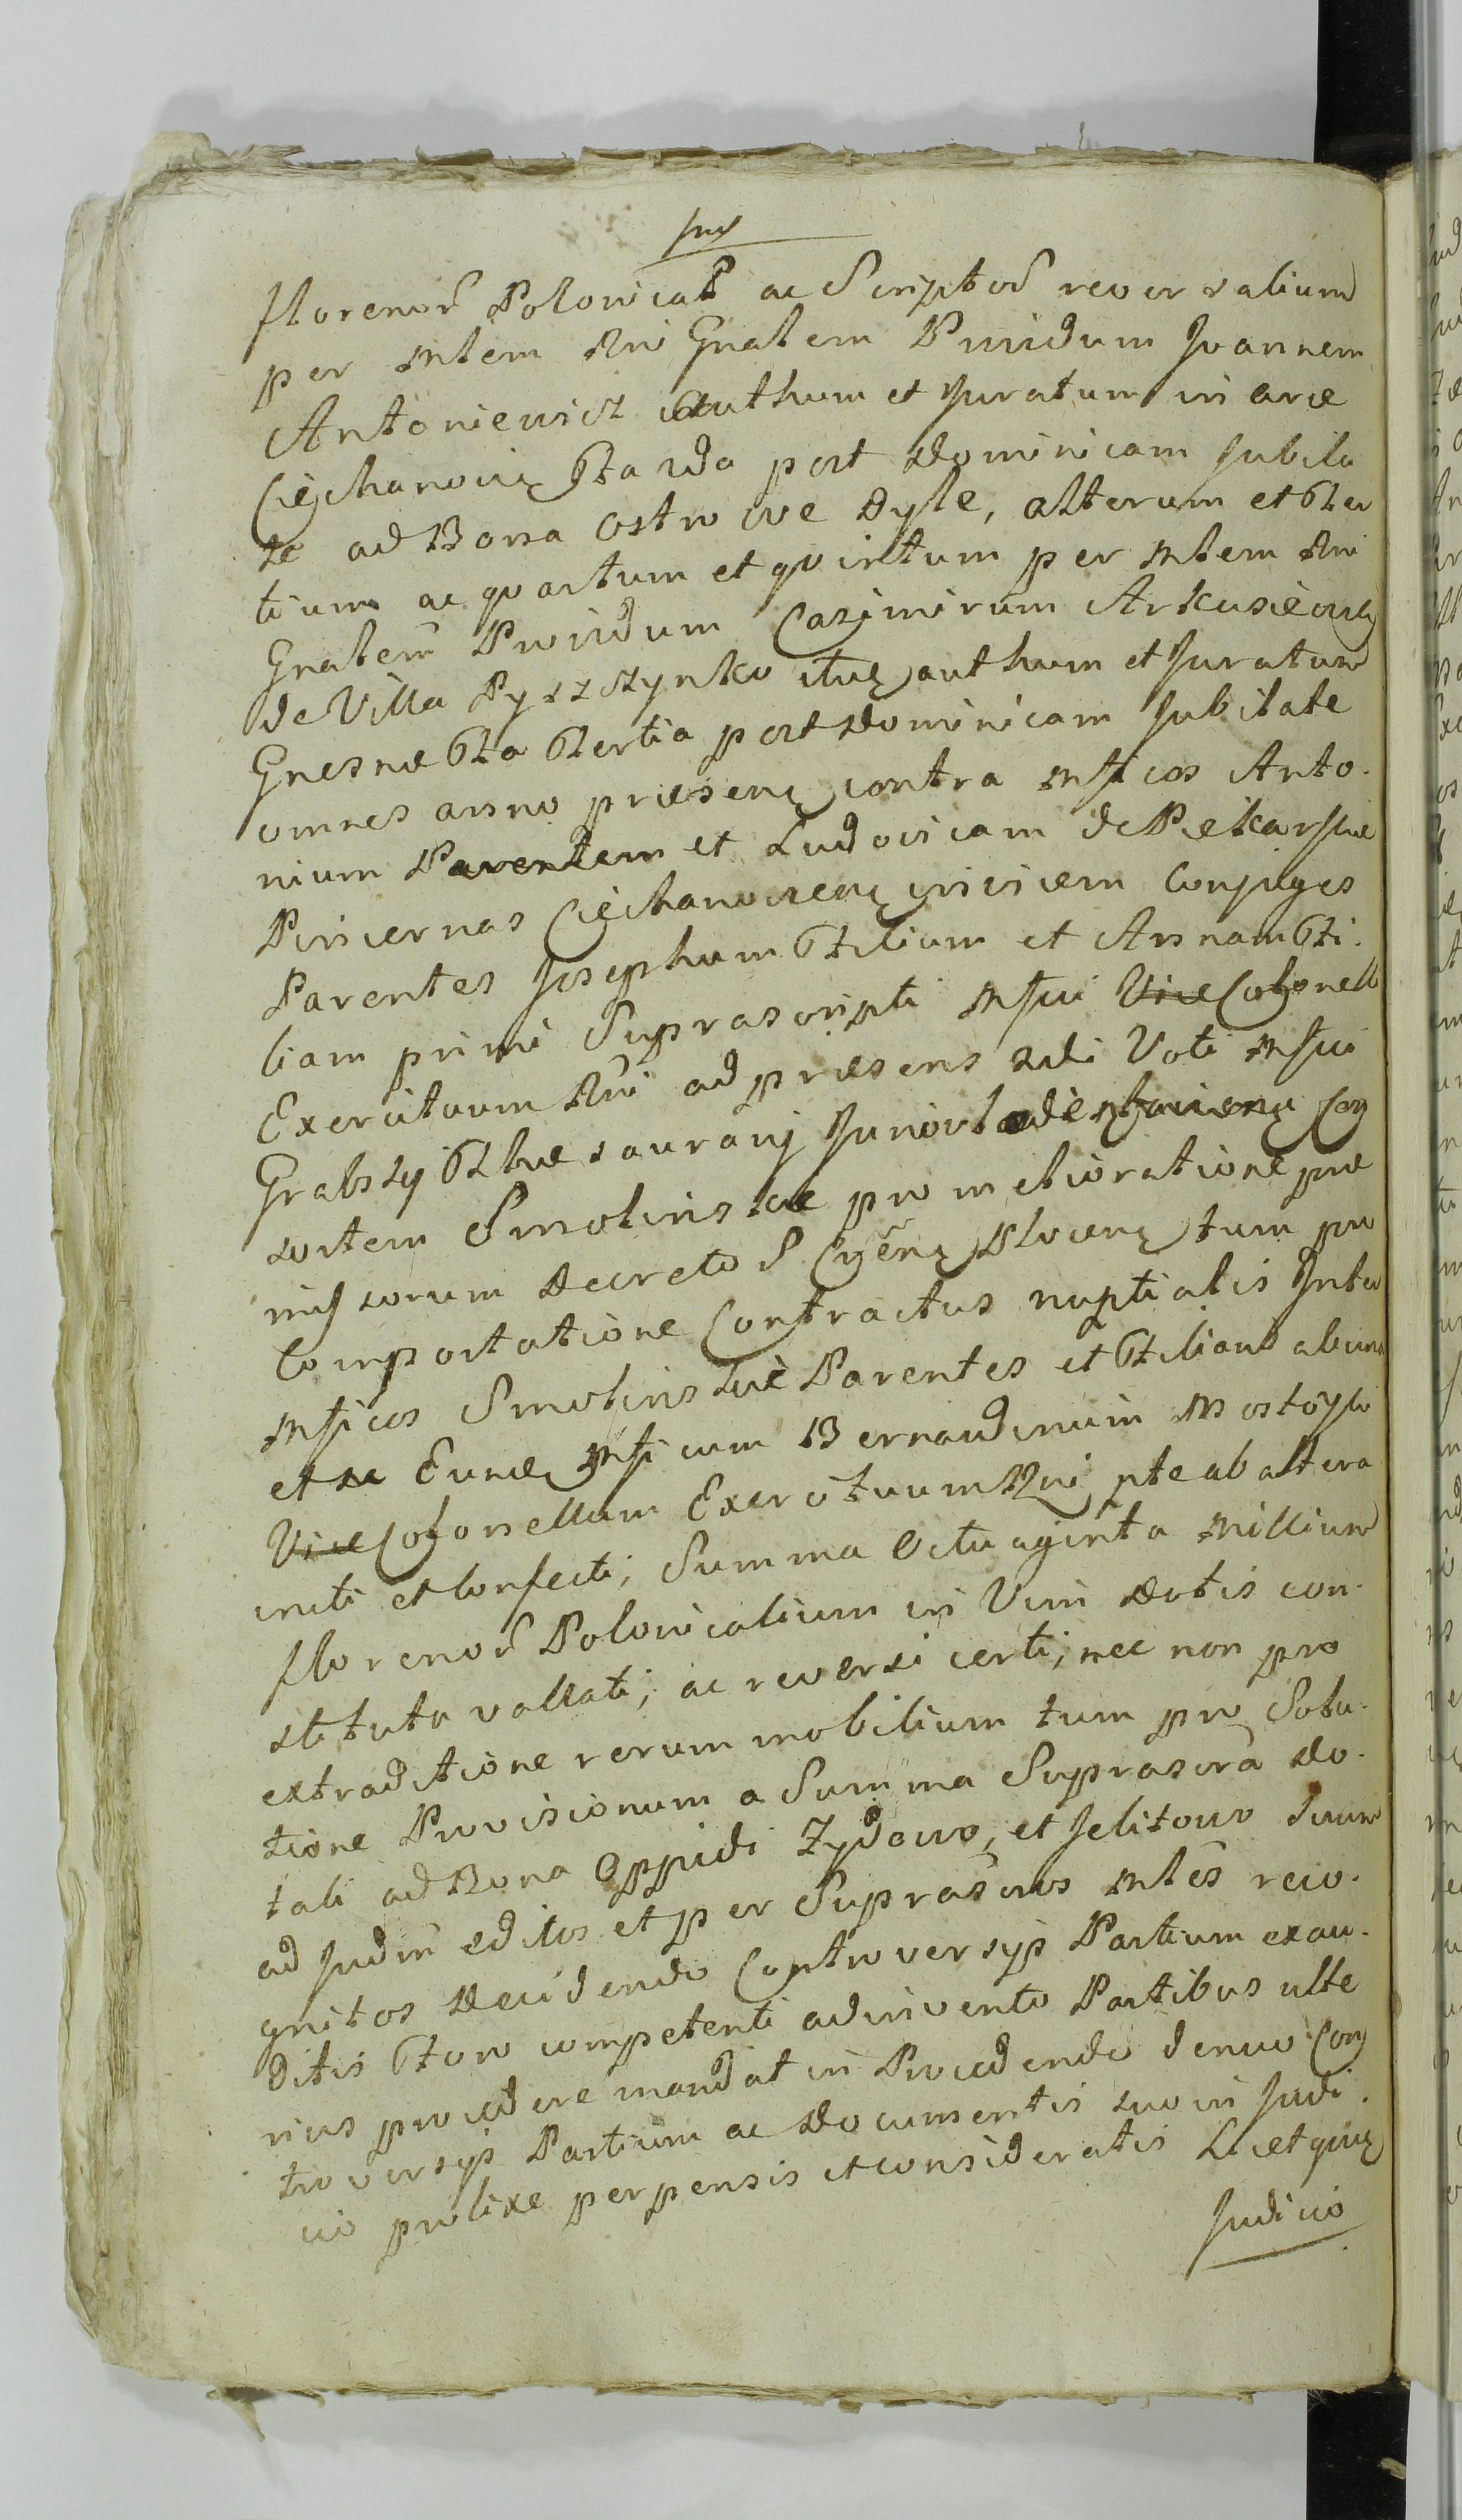 florenor Polonical ac Scriptor reversalium
per Mlem Rni Gnalem Pwidum Joannem
Antoniewicz authum et Juratum in arce
Ciechanovie fta 2da post Dominicam Jubila
te ad Bona Ostrowe Dyle, alterum et ter
tium ac quartum et quintum per Mlem Rni
Gnalem Pwidum Casimirum Arkusiewicz
de Villa authum et Juratum
Gnesnæ fta tertia post Dominicam Jubilate
omnes anno præsenti contra Mficos Anto-
nium Parentem et Ludovicam de Piekarskie
Pincernas Ciechanoviens invicem Conjuges
Parentes Josephum filium et Annam fi-
liam primi Suprascripti Mfici Vice Colonelli
Exercituum Rni ad præsens 2di Voti Mfici
Grabski Thesaurarij Junior Con
sortem Smolinskie pro melioratione præ
missorum Decreto S Plocens tum pro
Comportatione Contractus nuptialis Inter
Mficos Smolinskie Parentes et filiam ab una
et Mficum Bernardinum
Vice Colonellum Exercituum Rni pte ab altera
initi et Confecti, Summa Octuaginta Millium
florenor Polonicalium in Vim Dotis con-
stituta vallati, ac reversi certi, nec non pro
extraditione rerum mobilium tum pro Solu-
tione Provisionum a Summa Suprascra Do-
tali ad Bona Oppidi Zydowo, et Jelitowo suum
ad Judm editos et per Suprascros Mles reco-
gnitos Decidendo Controversijs Partium exau-
ditis foro competenti adinvento Partibus ulte
rius procedere mandat in Procedendo denuo Con
troversijs Partium ac Documentis suo in Judi-
cio prolixe perpensis et consideratis Licet quæ
Judicio